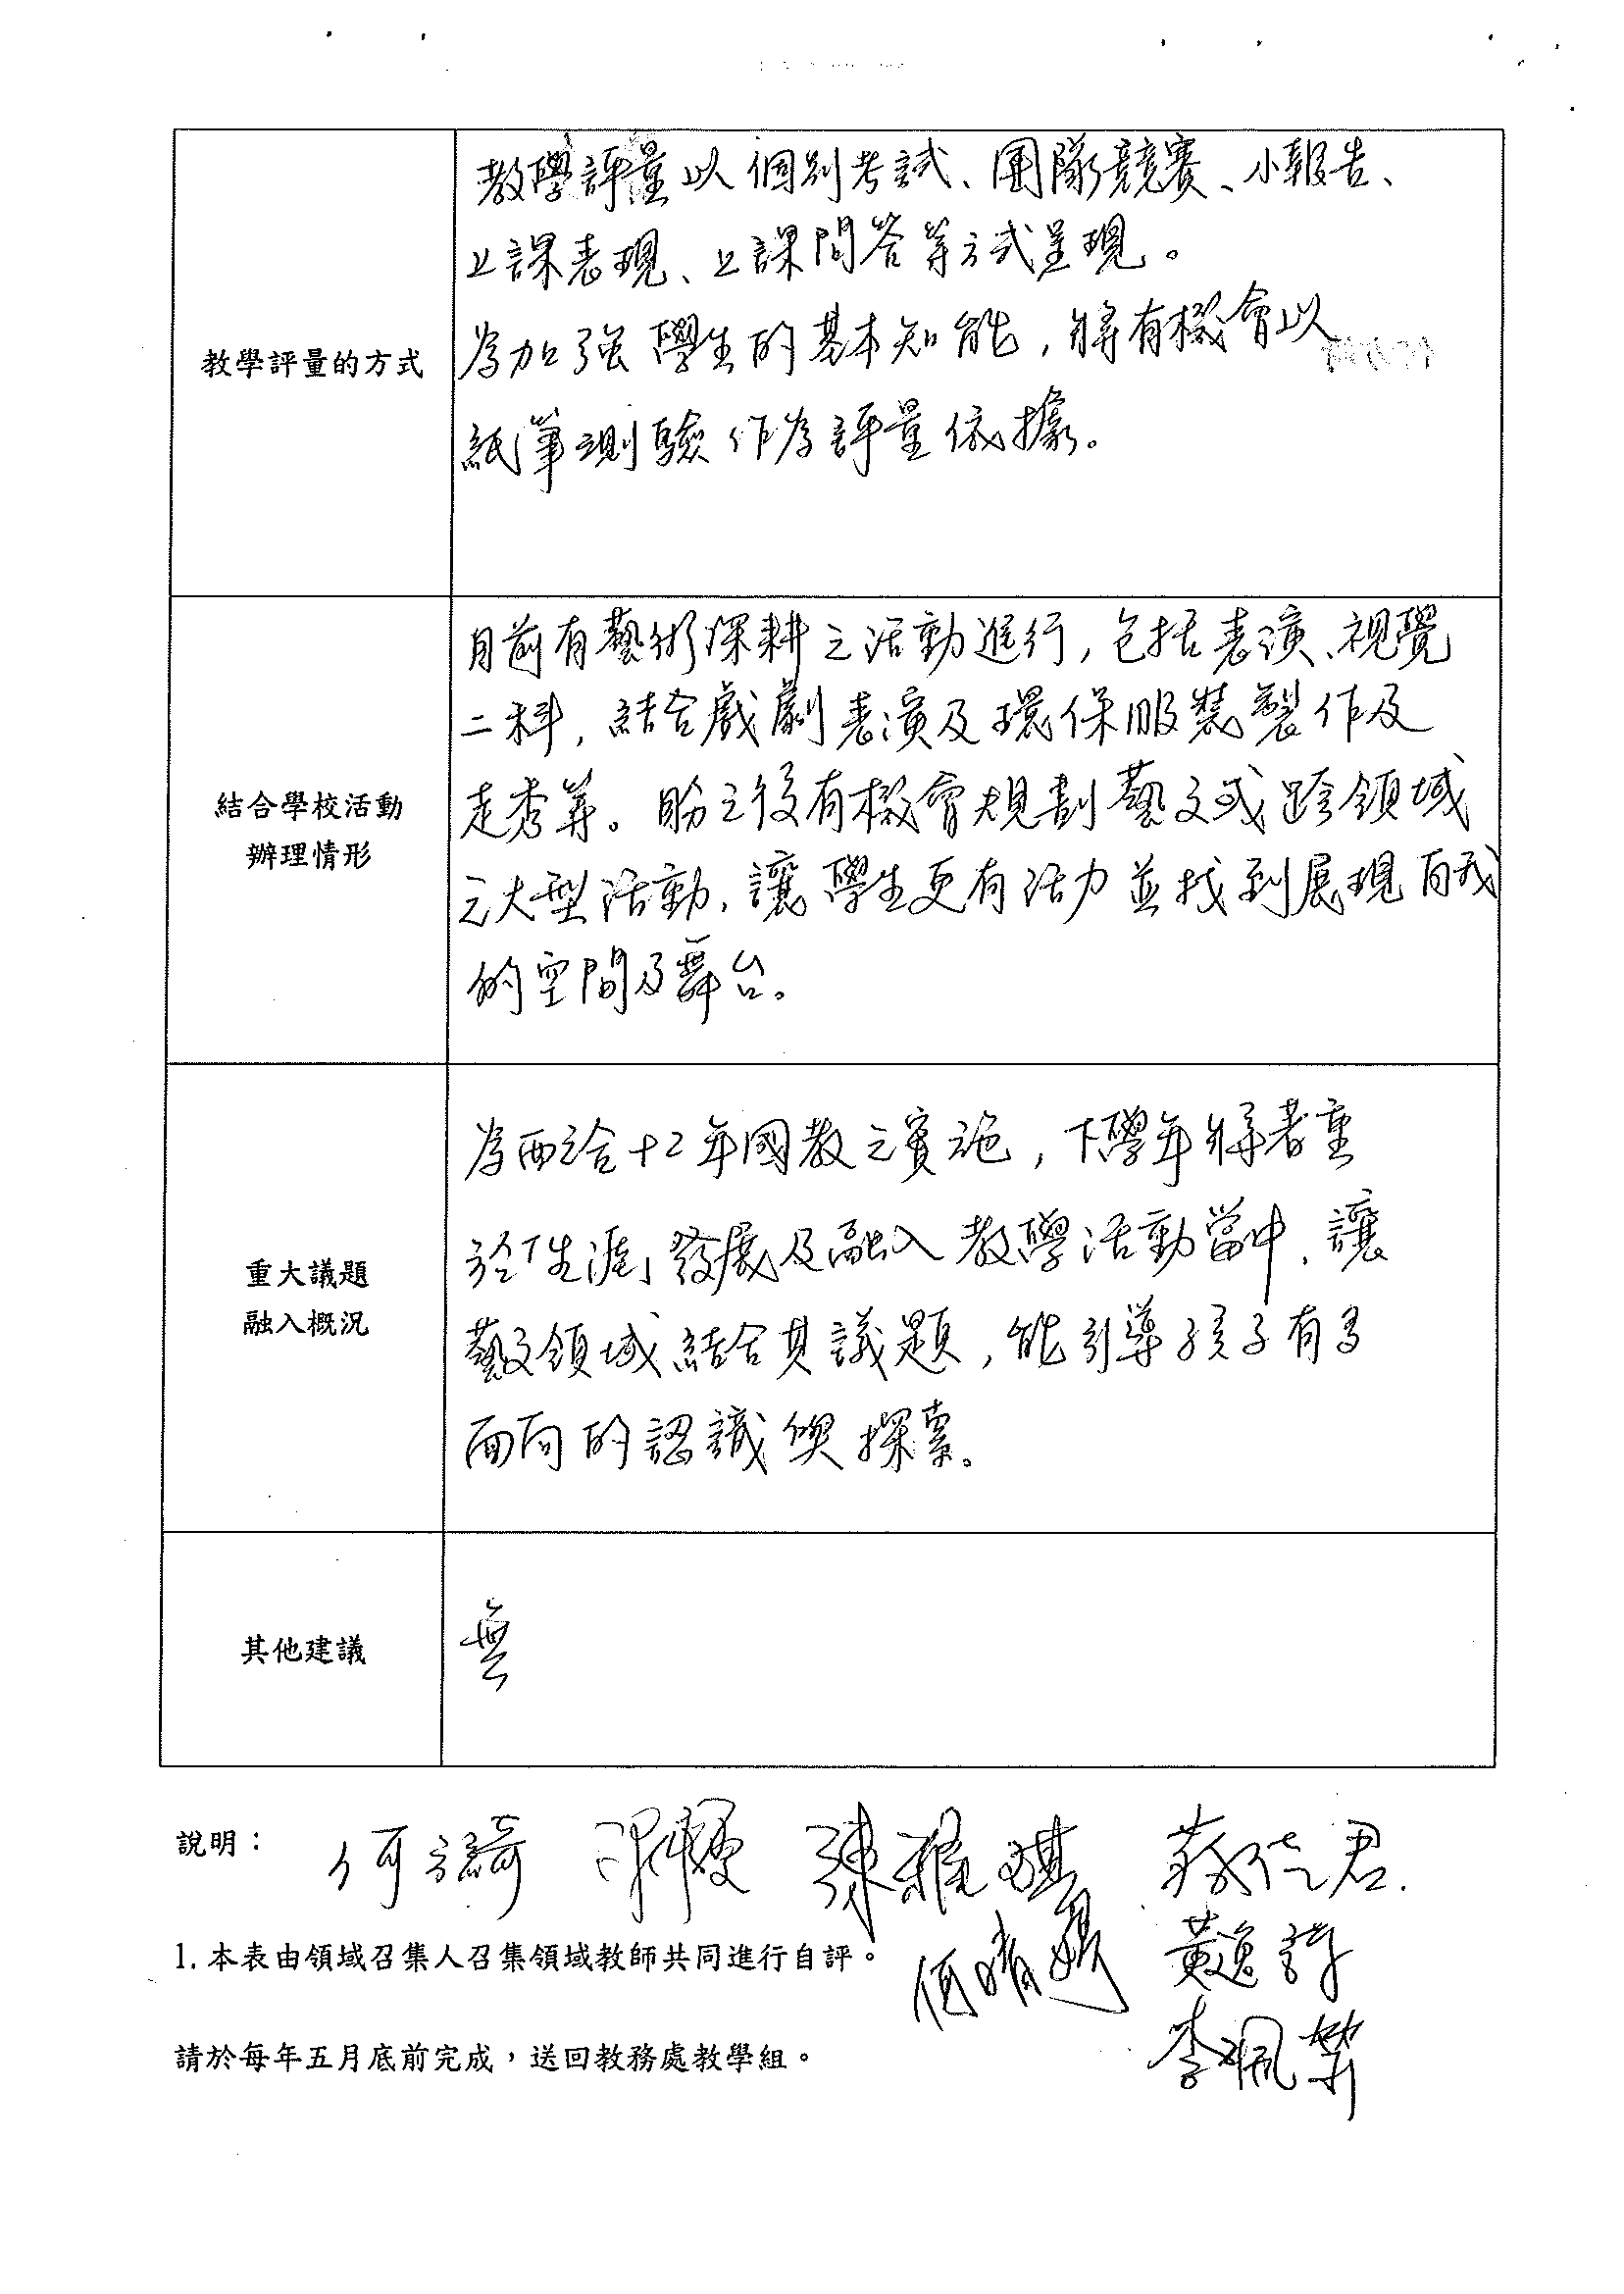 教學評量的方式
教學評量以個別考試、團隊競賽、小報告、
上課表現、上課問答等方式呈現。
為加強學生的基本知能,將有機會以
紙筆測驗作為評量依據。
結合學校活動
辦理情形
目前有藝術深耕之活動進行,包括表演、視覺
二科,結合戲劇表演及環保服裝製作及
走秀等。盼之後有機會規劃藝文或跨領域
之大型活動,讓學生更有活力並找到展現自我
的空間及舞台。
重大議題
融入概況
為配合十二年國教之實施,下學年將著重
於「生涯」發展及融入教學活動當中,讓
藝文領域結合其議題,能引導孩子有多
面向的認識與探索。
其他建議
無
說明:
陳雅琪
1. 本表由領域召集人召集領域教師共同進行自評。
何晴
黃逸詩
請於每年五月底前完成,送回教務處教學組。
李珮